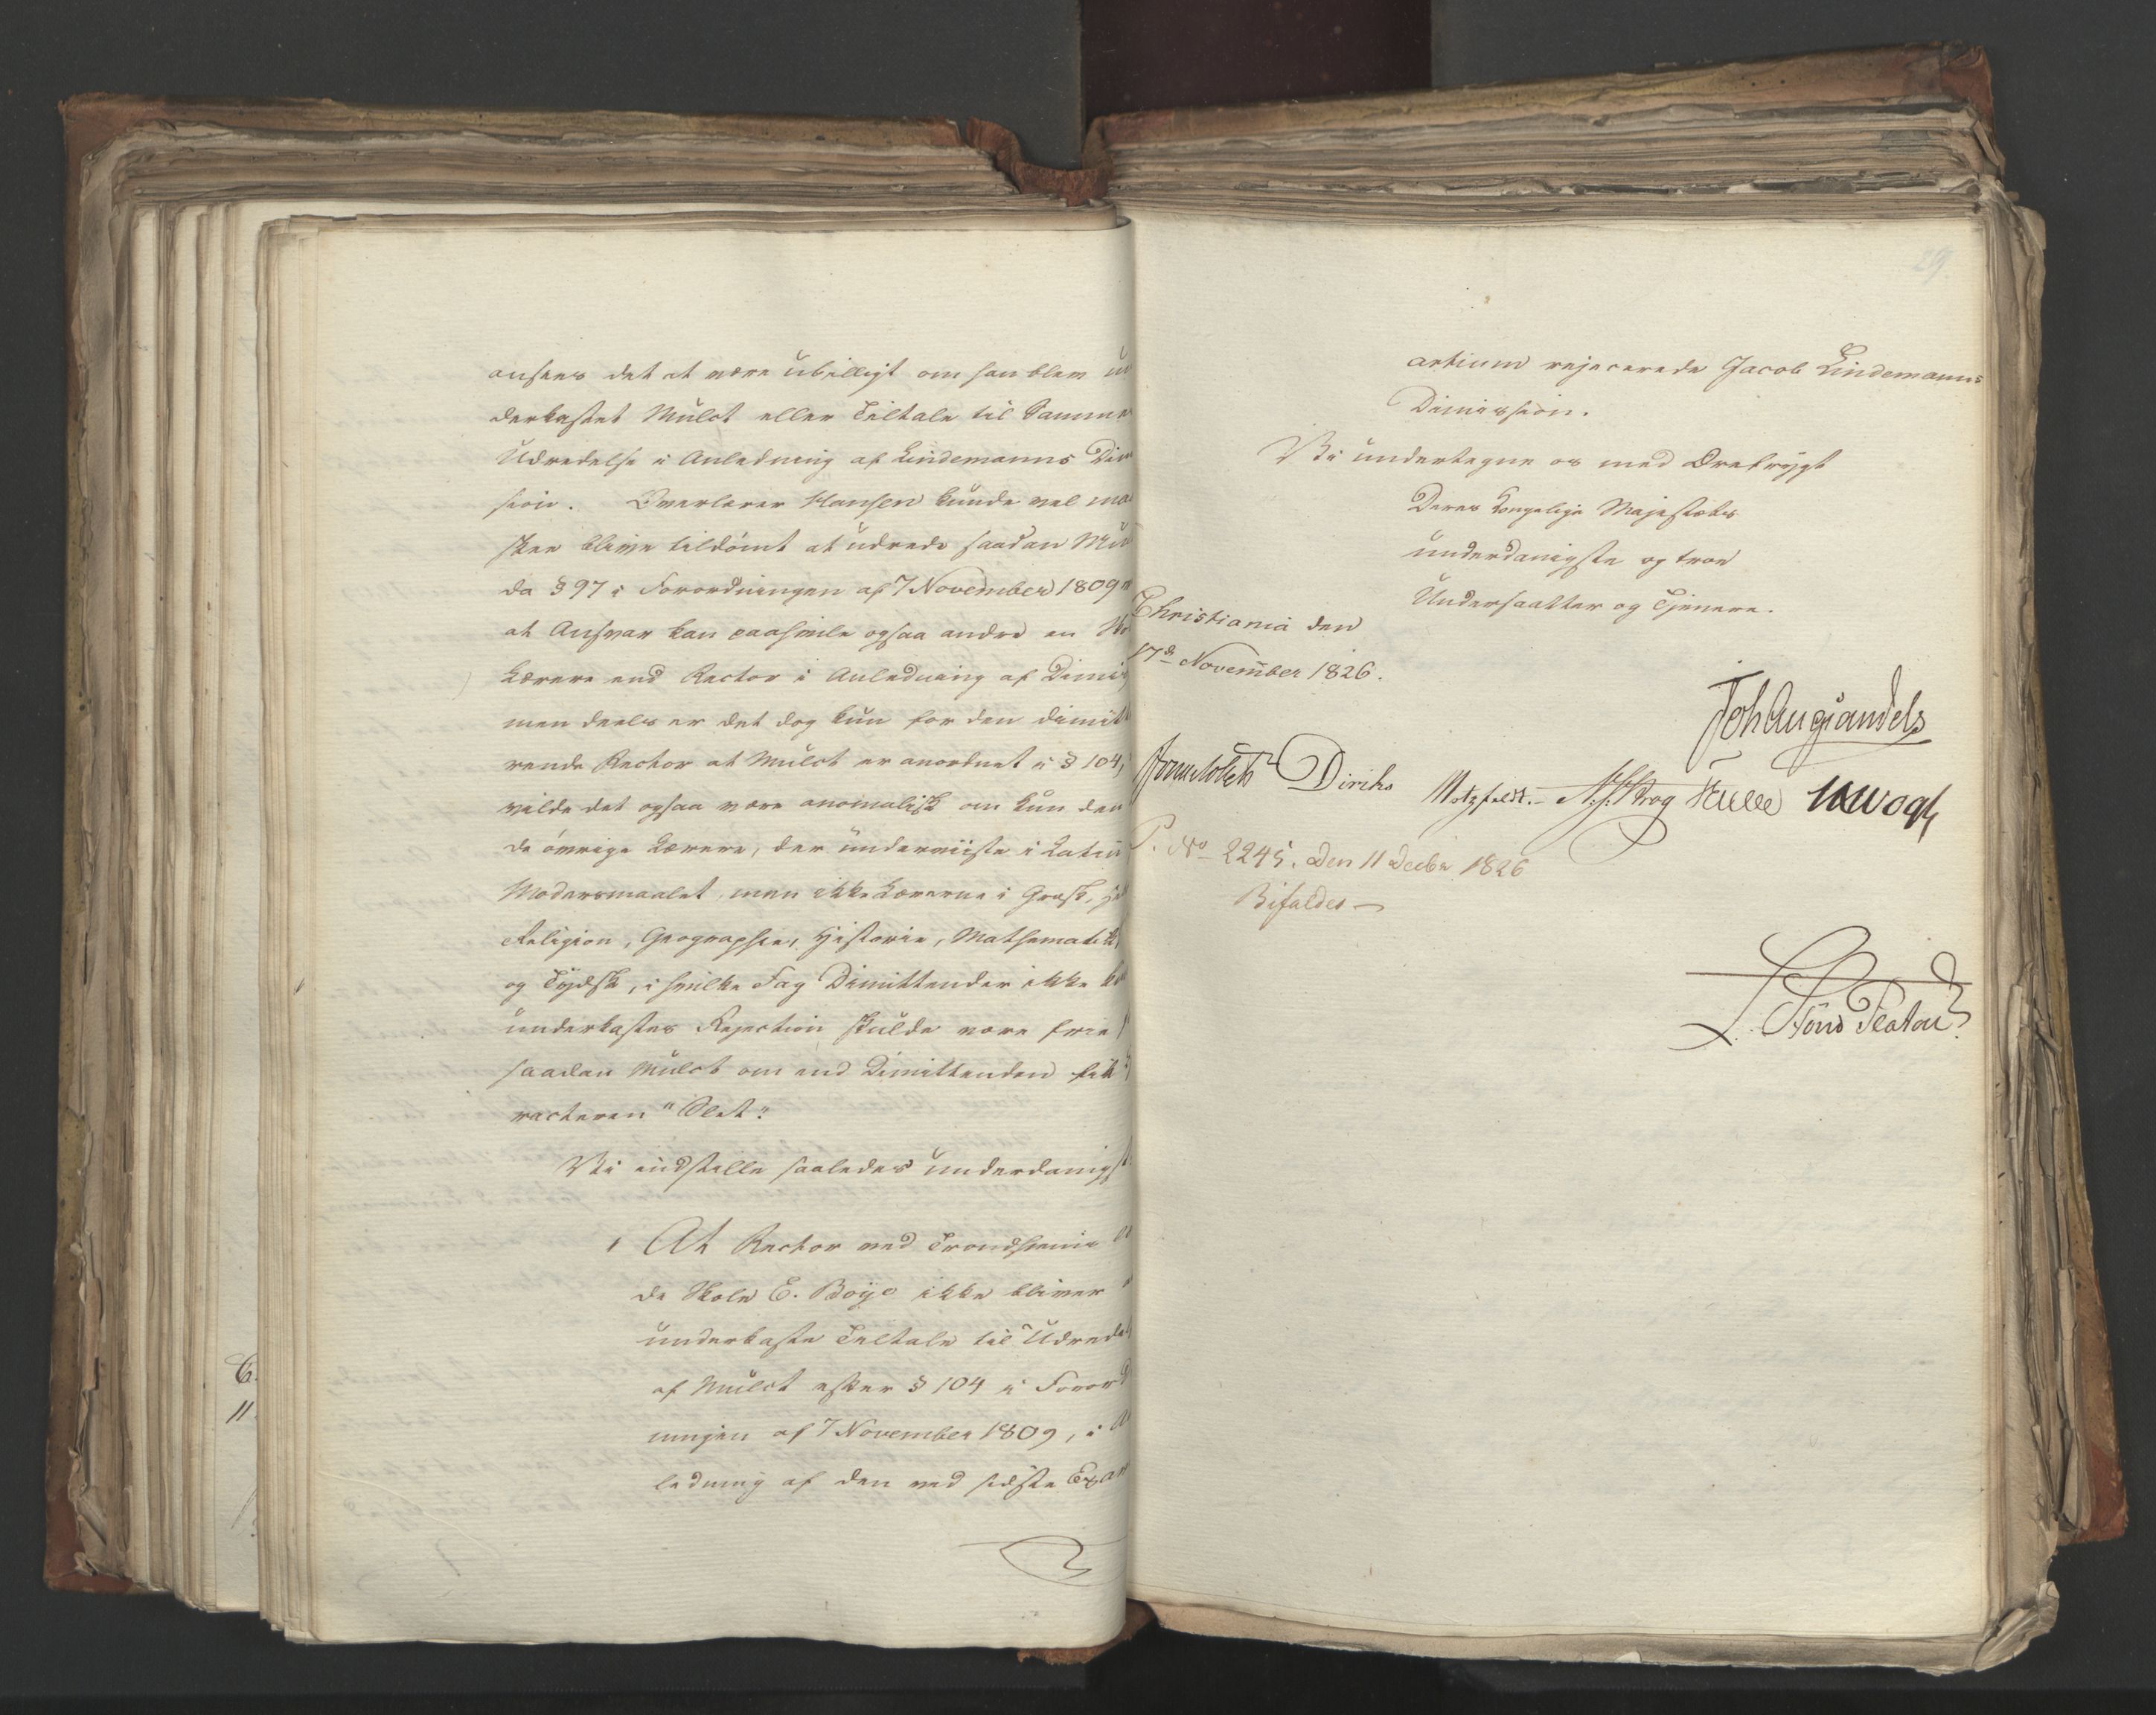 ansees det at være ubilligt om han blev un
derkastet Mulct eller Tiltale til Sammes
Udredelse i Anledning af Lindemanns Dim
sion. Overlærer Hansen kunde vel maa
skee blive tildømt at udrede saadan Mul
da § 97 i Forordningen af 7 November 1809
at Ansvar kan paahvile ogsaa andre
Lærere end Rector i Anledning af Dimis
men deels er det dog kun for den dimitt
rende Rector at Mulct er anordnet i § 104,
vilde det ogsaa være anomalisk om kun den
de øvrige Lærere, der underviiste i Latin
Modersmaalet, men ikke Lærerne i Græsk,
Religion, Geographie, Historie, Mathematik
og Tydsk, i hvilke Fag Dimittender ikke
underkastes Rejection skulde være frie
saadan Mulct om end Dimittenden fik
racteren "Slet".
Vi indstille saaledes underdanigst
1 At Rector ved Trondhjems
de Skole E. Boÿe ikke bliver
underkaste Tiltale til Udredel
af Mulct efter § 104 i Forord
ningen af 7 November 1809, i An
ledning af den ved sidste Exam
29
artium rejecerede Jacob Lindemanns
Dimission.
Vi undertegne os med Ærefrygt
Deres Kongelige Majestæts
underdanigste og troe
Undersaatter og Tjenere.
Christiania den
17d November 1826.
Joh Aug Sandels
Sommelhielm Diriks Motzfeldt. Krog Treschow J. H. Vogt
P. No 2245. Den 11 Decbr 1826
Bifaldes
L. Stoud Platou